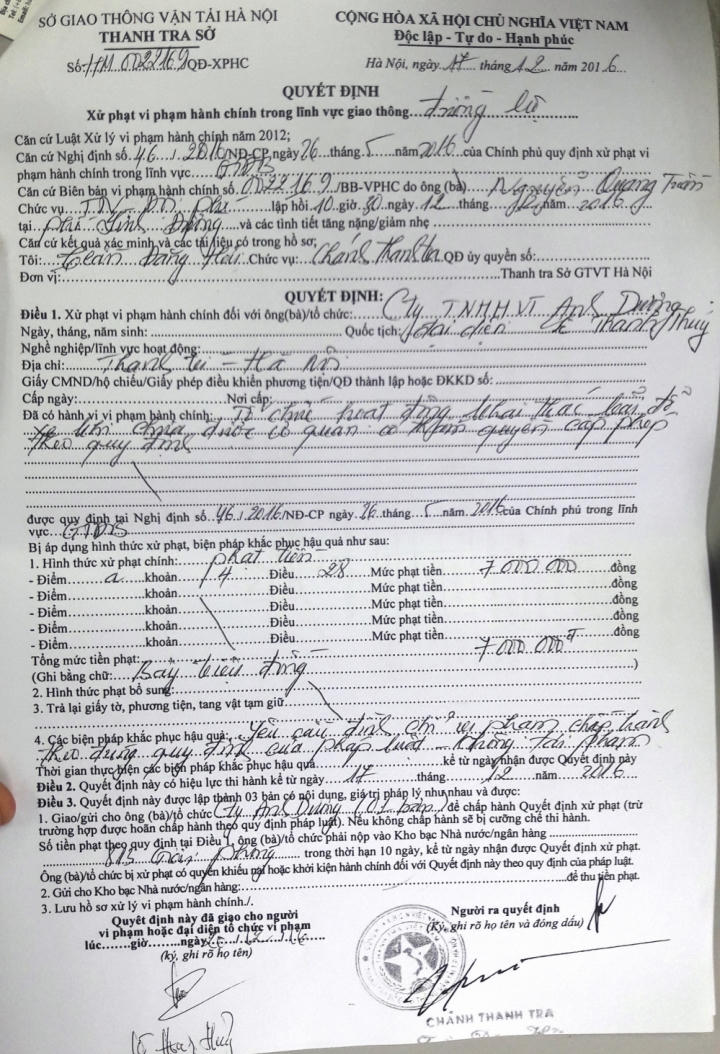 SỞ GIAO THÔNG VẬN TẢI HÀ NỘI
THANH TRA SỞ
Số: 0022169/QĐ-XPHC
CỘNG HÒA XÃ HỘI CHỦ NGHĨA VIỆT NAM
Độc lập - Tự do - Hạnh phúc
Hà Nội, ngày 17 tháng 12 năm 2016
QUYẾT ĐỊNH
Xử phạt vi phạm hành chính trong lĩnh vực giao thông đường bộ
Căn cứ Luật Xử lý vi phạm hành chính năm 2012;
Căn cứ Nghị định số 46/2016/NĐ-CP ngày 26 tháng 5 năm 2016 của Chính phủ quy định xử phạt vi
phạm hành chính trong lĩnh vực GTĐB
Căn cứ Biên bản vi phạm hành chính số 0022169/BB-VPHC do ông (bà) Nguyễn Quang
Chức vụ lập hồi 10 giờ 30 ngày 12 tháng 12 năm 2016
tại và các tình tiết tăng nặng/giảm nhẹ
Căn cứ kết quả xác minh và các tài liệu có trong hồ sơ;
Tôi: Trần Đăng Hải Chức vụ: Chánh Thanh tra QĐ ủy quyền số:
Đơn vị: Thanh tra Sở GTVT Hà Nội
QUYẾT ĐỊNH:
Điều 1. Xử phạt vi phạm hành chính đối với ông(bà)/tổ chức: Cty TNHH VT Ánh Dương
Ngày, tháng, năm sinh: Quốc tịch: đại diện Thanh Thúy
Nghề nghiệp/lĩnh vực hoạt động:
Địa chỉ: Hà Nội
Giấy CMND/hộ chiếu/Giấy phép điều khiển phương tiện/QĐ thành lập hoặc ĐKKD số:
Cấp ngày: Nơi cấp:
Đã có hành vi vi phạm hành chính: Tổ chức hoạt động khai thác bãi đỗ
xe khi chưa được cơ quan có thẩm quyền cấp phép
theo quy định
được quy định tại Nghị định số 46/2016/NĐ-CP ngày 26 tháng 5 năm 2016 của Chính phủ trong lĩnh
vực GTĐB
Bị áp dụng hình thức xử phạt, biện pháp khắc phục hậu quả như sau:
1. Hình thức xử phạt chính: phạt tiền
- Điểm a khoản 4 Điều 28 Mức phạt tiền 7000.000 đồng
- Điểm khoản Điều Mức phạt tiền đồng
- Điểm khoản Điều Mức phạt tiền đồng
- Điểm khoản Điều Mức phạt tiền đồng
- Điểm khoản Điều Mức phạt tiền đồng
Tổng mức tiền phạt: 7000.000đ
(Ghi bằng chữ: Bảy triệu đồng)
2. Hình thức phạt bổ sung:
3. Trả lại giấy tờ, phương tiện, tang vật tạm giữ
4. Các biện pháp khắc phục hậu quả: Yêu cầu đình chỉ vi phạm chấp hành
theo đúng quy định của pháp luật - Không tái phạm
Thời gian thực hiện các biện pháp khắc phục hậu quả kể từ ngày nhận được Quyết định này
Điều 2. Quyết định này có hiệu lực thi hành kể từ ngày 17 tháng 12 năm 2016
Điều 3. Quyết định này được lập thành 03 bản có nội dung, giá trị pháp lý như nhau và được:
1. Giao/gửi cho ông (bà)/tổ chức Cty Ánh Dương (01 bản) để chấp hành Quyết định xử phạt (trừ
trường hợp được hoãn chấp hành theo quy định pháp luật). Nếu không chấp hành sẽ bị cưỡng chế thi hành.
Số tiền phạt theo quy định tại Điều 1, ông (bà)/tổ chức phải nộp vào Kho bạc Nhà nước/ngân hàng
trong thời hạn 10 ngày, kể từ ngày nhận được Quyết định xử phạt.
Ông (bà)/tổ chức bị xử phạt có quyền khiếu nại hoặc khởi kiện hành chính đối với Quyết định này theo quy định của pháp luật.
2. Gửi cho Kho bạc Nhà nước/ngân hàng: để thu tiền phạt.
3. Lưu hồ sơ xử lý vi phạm hành chính./.
Quyết định này đã giao cho người
vi phạm hoặc đại diện tổ chức vi phạm
lúc giờ ngày
(ký, ghi rõ họ tên)
Người ra quyết định
(Ký, ghi rõ họ tên và đóng dấu)
CHÁNH THANH TRA